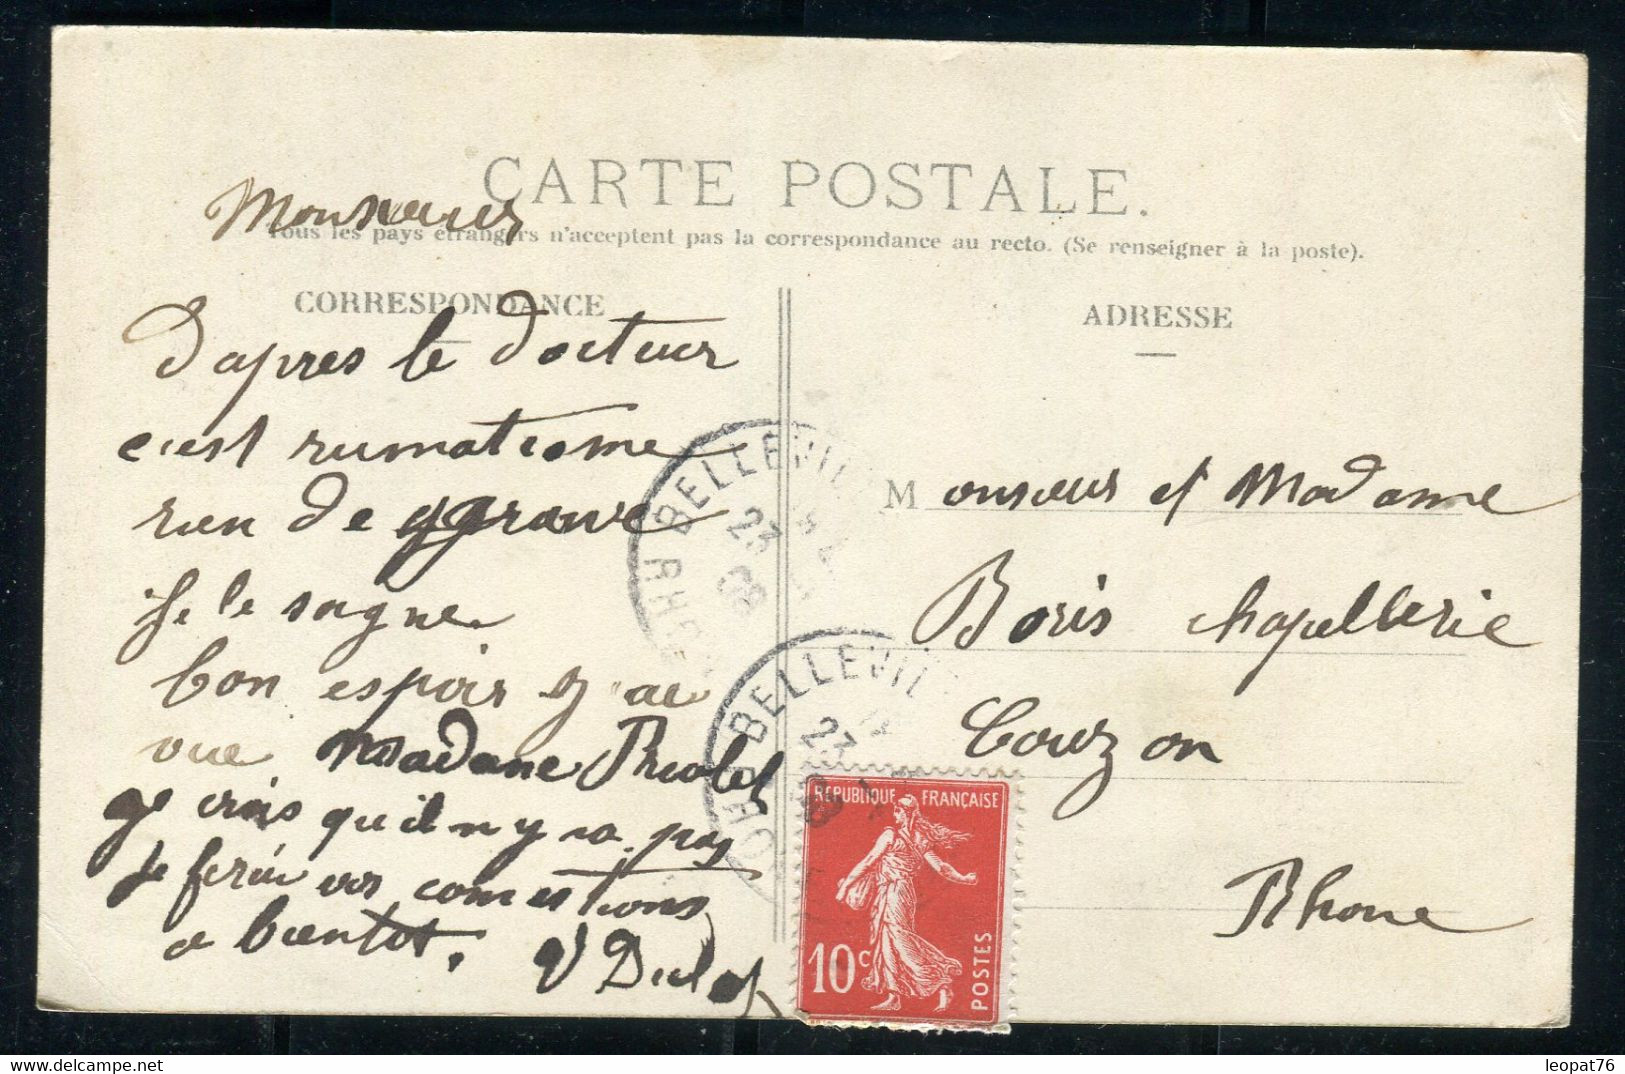 CARTE POSTALE.
Monsieur
Tous les pays étrangers n'acceptent pas la correspondance au recto. (Se renseigner à la poste).
CORRESPONDANCE
D'apres le docteur
c'est rumatisme
rien de ggrave
je le sogne
bon espoir
vue Madame
ge crois qu'il n y a pas
Je ferai vos comestions
a bientot.
V Dulot
ADRESSE
Monsieur et Madame
Boris chapellerie
Couzon
Rhone
BELLEVIL
23
RH
BELLEVIL
23
RÉPUBLIQUE FRANÇAISE
10c
POSTES
leopat76